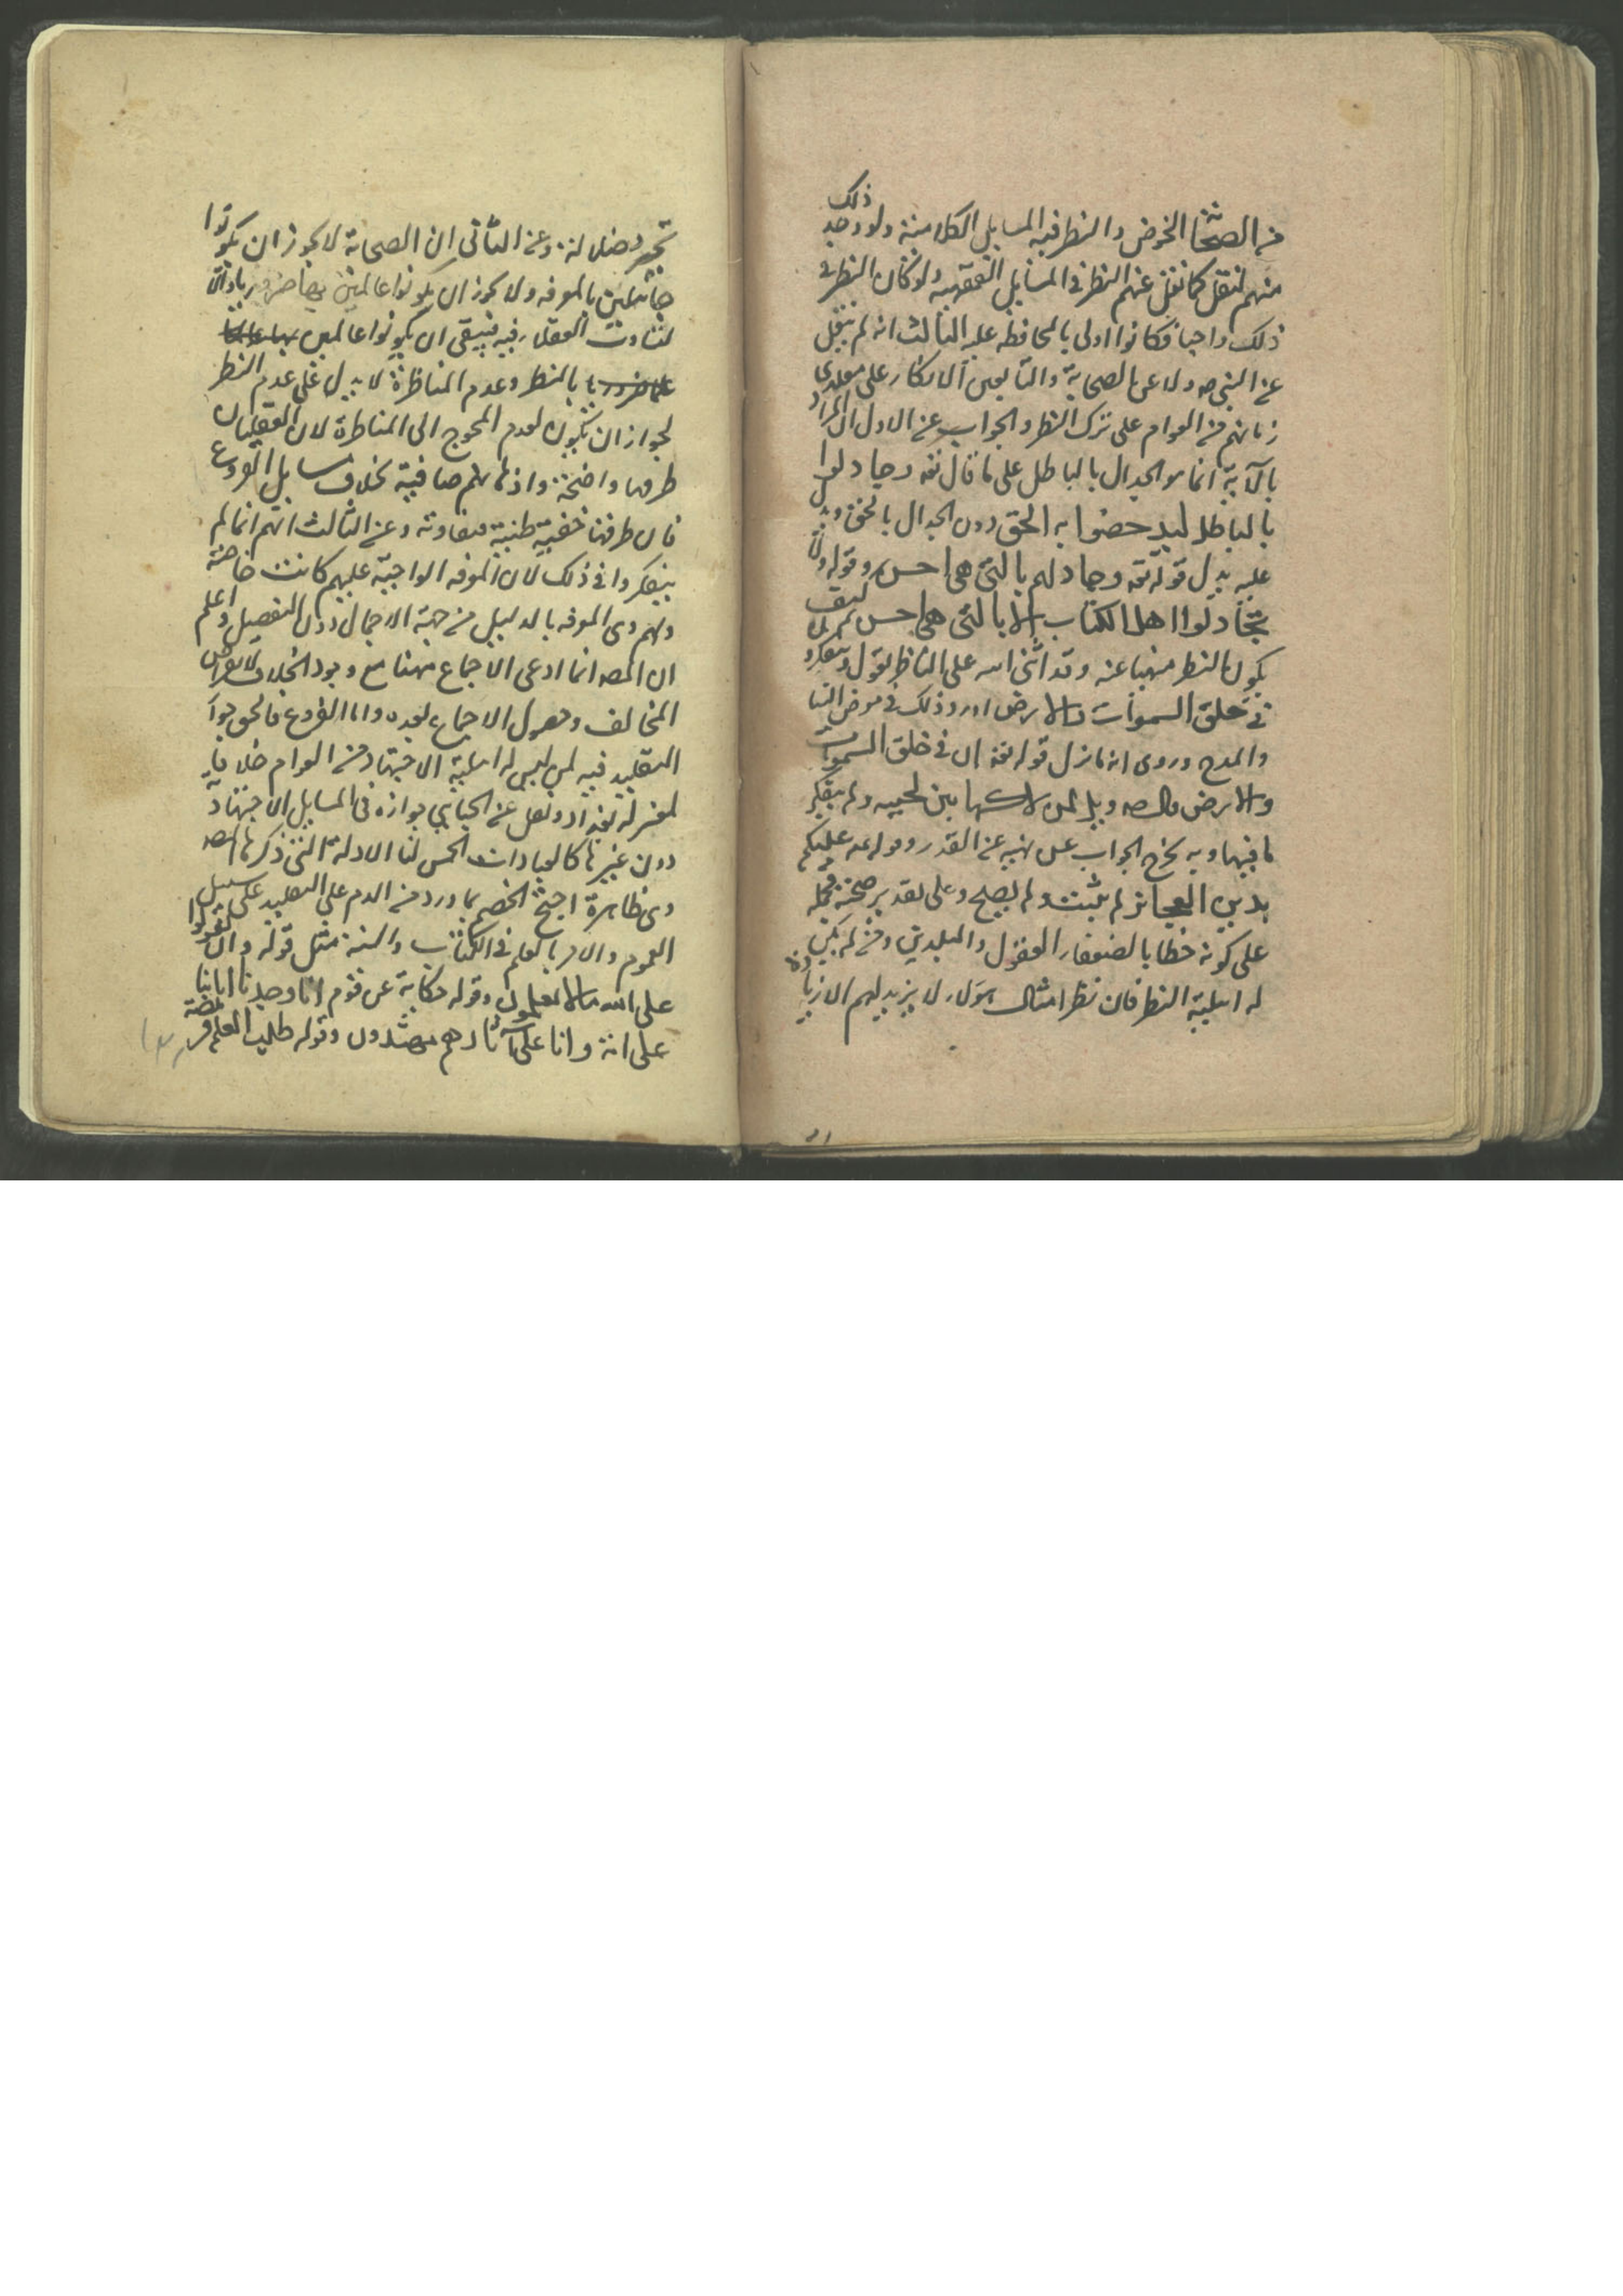 من الصحابة الخوض والنظر فيه المسايل الكلامية ولو وجد ذلك
منهم لنقل كما نقل عنهم النظر في المسايل الفقهيه ولو كان النظر في
ذلك واجبا فكانوا اولى بالمحافظه عليه الثالث انه لم ينقل
عن النبي صه ولا عن الصحابة والتابعين الانكار على مقلدي
زمانهم من العوام على ترك النظر والجواب عن الاول ان المراد
بالآية انما هو الجدال بالباطل على ما قال تعه وجادلوا
بالباطل ليدحضوا به الحق دون الجدال بالحق
عليه يدل قوله تعه وجادلهم بالتي هي احسن وقوله ولا
تجادلوا اهل الكتاب الا بالتي هي احسن كيف
يكون النظر منهيا عنه وقد اثنى الله على الناظر بقوله ويتفكرون
في خلق السموات والارض اورد ذلك في معرض الثنا
والمدح وروى انه ما نزل قوله تعه ان في خلق السموات
والارض قال صه ويل لمن لاكها بين لحييه ولم يتفكر
ما فيها وبه يخرج الجواب عن نهيه عن القدر وقوله عه عليكم
بدين العجائز لم يثبت ولم يصح وعلى تقدير صحته
على كونه خطابا لضعفاء العقول والبلدين ومن لم يكن
له اهلية النظر فان نظر امثال هؤلاء لا يزيد لهم الا زيادة
تحير وضلالة وعن الثاني ان الصحابة لا يجوز ان يكونوا
جاهلين بالمعرفه ولا يجوز ان يكونوا عالمين بها ضروريا والا
لتفاوت العقلاء فيه فيبقى ان يكونوا عالمين بها علما
علما ضروريا بالنظر وعدم المناظرة لا يدل على عدم النظر
لجواز ان يكون لعدم المحوج الى المناظرة لان العقليات
طرقها واضحة واذهانهم صافية بخلاف مسايل الفروع
فان طرقها خفية ظنية متفاوته وعن الثالث انهم انما لم
ينكروا في ذلك لان المعرفه الواجبة عليهم كانت خاصة
ولهم وهى المعرفه بالدليل من جهة الاجمال دون التفصيل واعلم
ان المصه انما ادعى الاجماع ههنا مع وجود الخلاف
المخالف وحصول الاجماع بعده واما الفروع فالحق جواز
التقليد فيه لمن ليس له اهلية الاجتهاد من العوام خلافا
لمعتزلة بغداد ونقل عن الجبايي جوازه في المسايل الاجتهاد
دون غيرها كالعبادات الخمس لنا الادلة التي ذكرها المصه
وهى ظاهرة احتج الخصم بما ورد من الذم على التقليد على سبيل
العموم والامر بالعلم في الكتاب والسنة مثل قوله وان تقولوا
على الله ما لا تعلمون وقوله حكاية عن قوم انا وجدنا ابانا
على امة وانا على آثارهم مهتدون وقوله طلب العلم فريضة